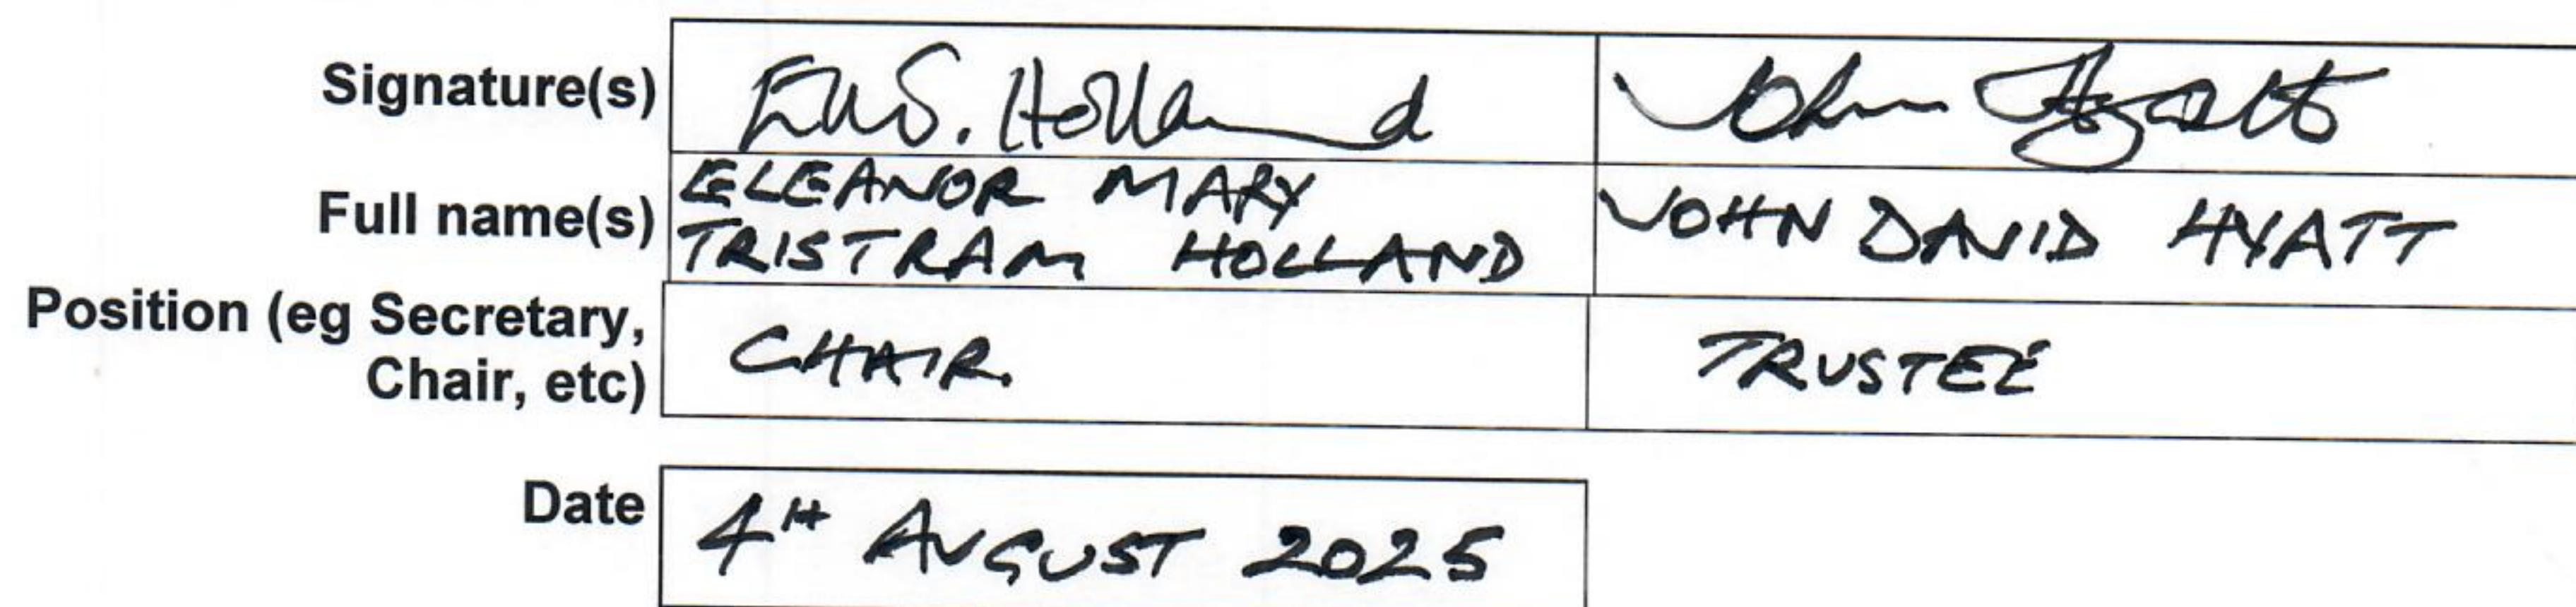 Signature(s) E.M.S. Holland John Hyatt
Full name(s) ELEANOR MARY TRISTRAM HOLLAND JOHN DAVID HYATT
Position (eg Secretary, Chair, etc) CHAIR. TRUSTEE
Date 4TH AUGUST 2025